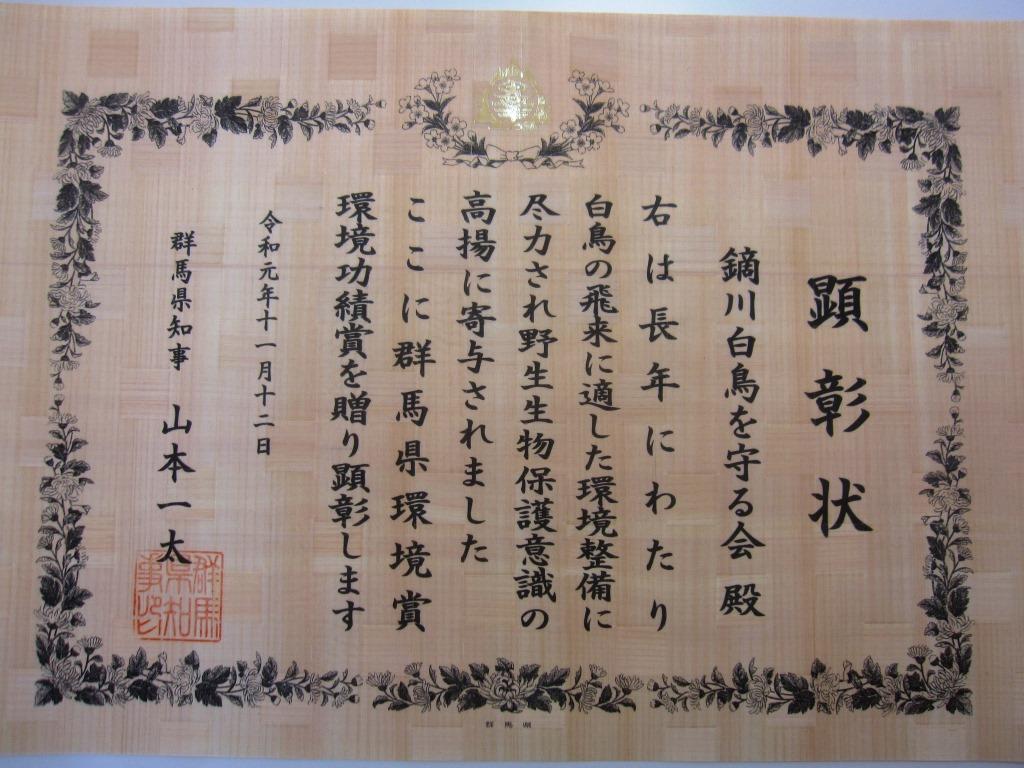 顕彰状
鏑川白鳥を守る会 殿
右は長年にわたり
白鳥の飛来に適した環境整備に
尽力され野生生物保護意識の
高揚に寄与されました
ここに群馬県環境賞
環境功績賞を贈り顕彰します
令和元年十一月十二日
群馬県知事 山本一太
群馬県知事印
群馬県